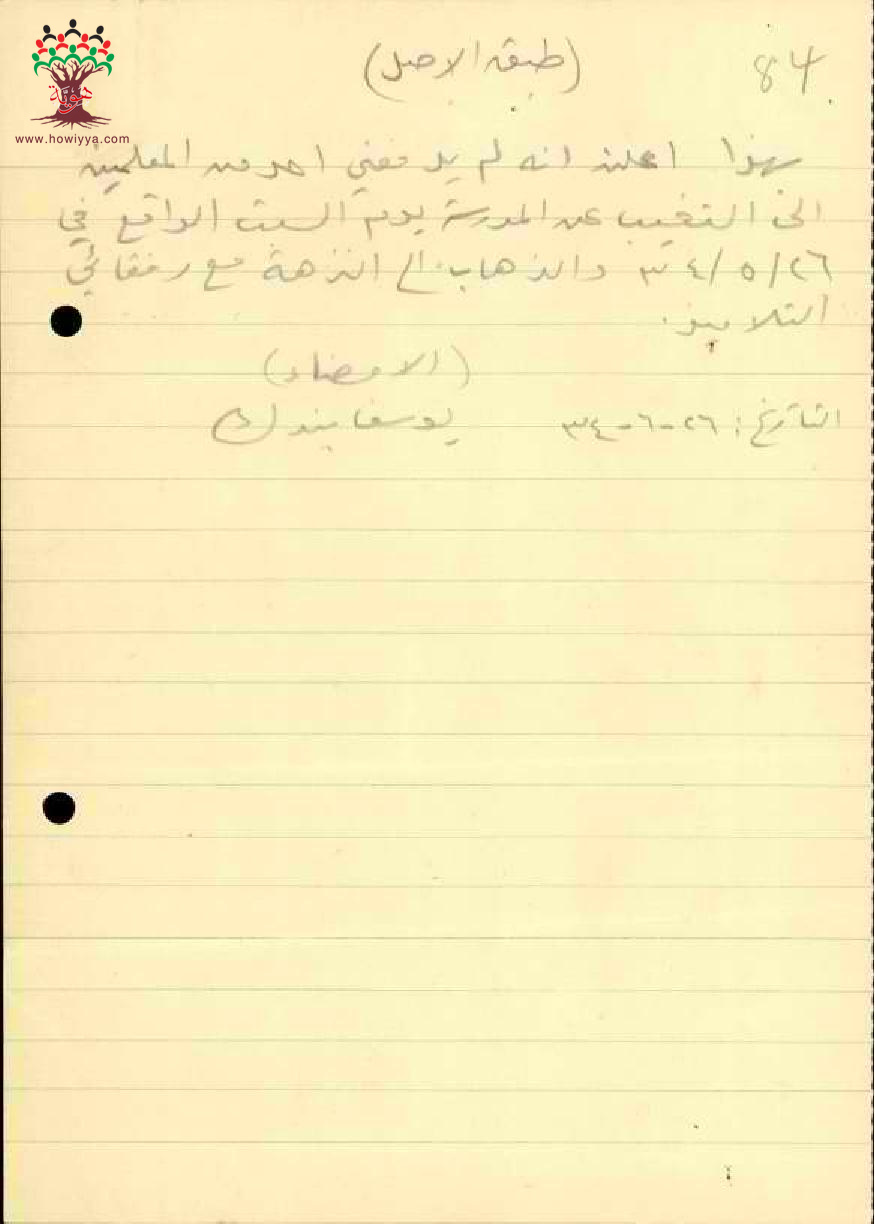 هوية
www.howiyya.com
84
(طبق الاصل)
بهذا اعلن انه لم يدفعني احد من المعلمين
الى التغيب عن المدرسة يوم السبت الواقع في
٢٦/٥/٣٤ والذهاب الى النزهة مع رفقائي
التلاميذ.
(الامضاء)
التأريخ: ٢٦-٦-٣٤ يوسف بندك